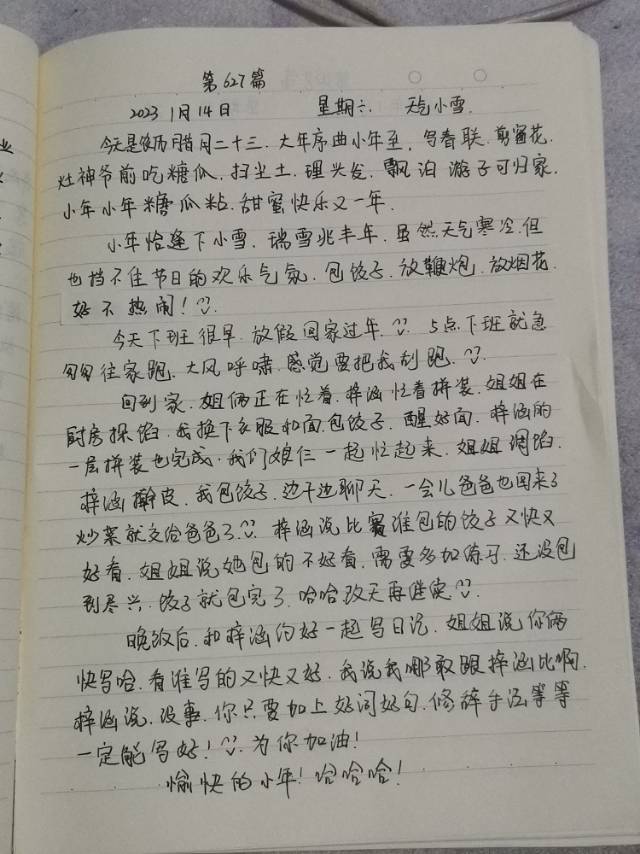 第627篇
2023 1月14日 星期六. 天气小雪.
今天是农历腊月二十三. 大年序曲小年至, 写春联. 剪窗花.
灶神爷前吃糖瓜, 扫尘土. 理头发. 飘泊游子可归家.
小年小年糖瓜粘, 甜蜜快乐又一年.
小年恰逢下小雪. 瑞雪兆丰年. 虽然天气寒冷. 但
也挡不住节日的欢乐气氛. 包饺子. 放鞭炮. 放烟花.
好不热闹!
今天下班很早. 放假回家过年. 5点下班就急
匆匆往家跑, 大风呼啸. 感觉要把我刮跑.
回到家. 姐俩正在忙着. 梓涵忙着拼装. 姐姐在
厨房操馅. 我换下衣服和面. 包饺子. 醒好面. 梓涵的
一层拼装也完成. 我们娘仨一起忙起来. 姐姐调馅.
梓涵擀皮. 我包饺子. 边干边聊天. 一会儿爸爸也回来了
炒菜就交给爸爸了. 梓涵说比赛谁包的饺子又快又
好看. 姐姐说她包的不好看. 需要多加练习. 还没包
到尽兴. 饺子就包完了. 哈哈改天再继续
晚饭后. 和梓涵约好一起写日记. 姐姐说你俩
快写哈. 看谁写的又快又好. 我说我哪敢跟梓涵比啊.
梓涵说. 没事. 你只要加上好词好句. 修辞手法等等
一定能写好! 为你加油!
愉快的小年! 哈哈哈!